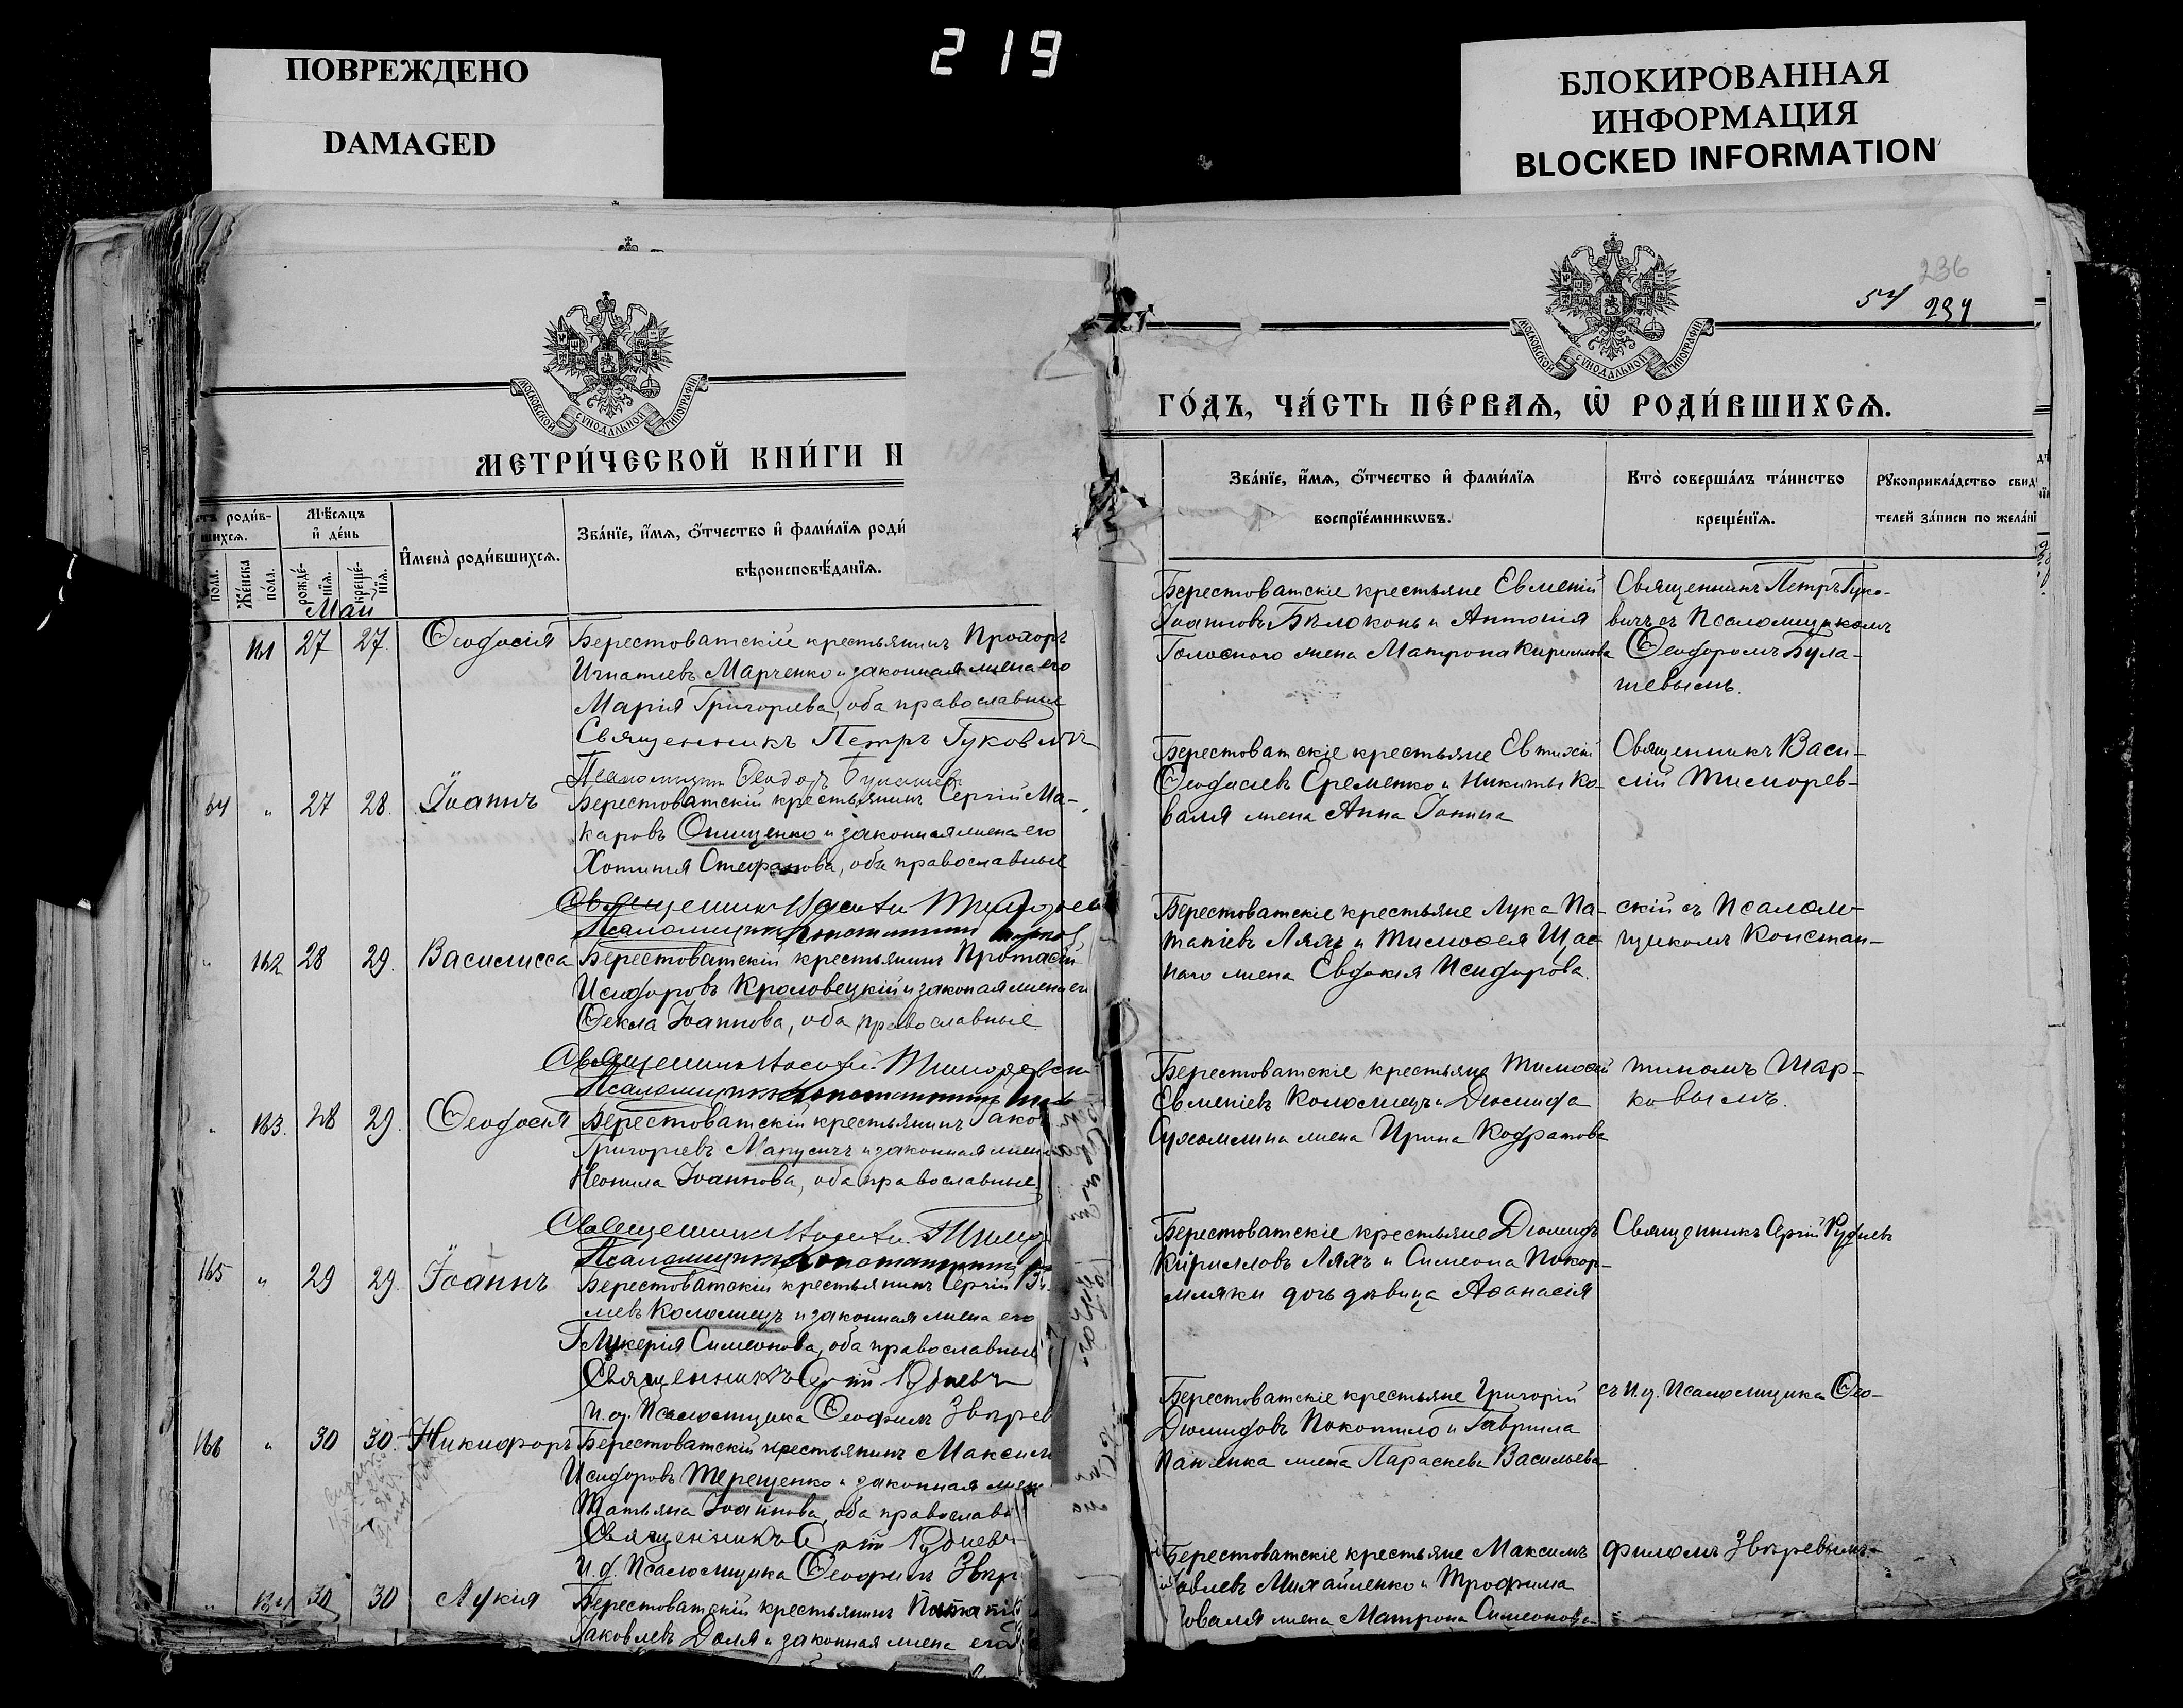 ПОВРЕЖДЕНО
DAMAGED
219
БЛОКИРОВАННАЯ
ИНФОРМАЦИЯ
BLOCKED INFORMATION
МОСКОВСКОЙ СѴНОДАЛЬНОЙ ТИПОГРАФІИ
МЕТРИ́ЧЕСКОЙ КНИ́ГИ Н
роди́в-
шихсѧ.
пола.
Же́нска по́ла.
Мѣ́сѧцъ и҆ де́нь
рожде́-нїѧ.
креще́-нїѧ.
И҆мена̀ роди́вшихсѧ.
Зва́нїе, и҆́мѧ, ѻ҆́тчество и҆ фами́лїѧ роди́
вѣроисповѣ́данїѧ.
Май
161 27 27. Ѳеодосія Берестоватскій крестьянинъ Прохоръ
Игнатіевъ Марченко и законная жена его
Марія Григорьева, оба православные
Священникъ Петръ Гукович
Псаломщик Ѳеодоръ
64 " 27 28. Іоаннъ Берестоватскій крестьянинъ Сергій Ма-
каровъ Онищенко и законная жена его
Хотинія Стефанова, оба православные
Священникъ
Псаломщикъ Константинъ
" 162 28 29. Василисса Берестоватскій крестьянинъ Протасій
Исидоровъ Кроловецкій и законая жена ег
Ѳекла Іоаннова, оба православные
Священникъ
Псаломщикъ Константинъ
" 163. 28 29. Ѳеодосія Берестоватскій крестьянинъ Іаков
Григорьевъ Манусичъ и законная жена
Неонила Іоаннова, оба православные.
Священникъ
Псаломщикъ Константинъ
165 " 29 29. Іоаннъ Берестоватскій крестьянинъ Сергій
Коломіецъ и законная жена его
Гликерія Симеонова, оба православные
Священникъ Сергій Рудневъ
И.д. Псаломщика Ѳеофилъ Звѣрев
166 " 30 30. Никифоръ Берестоватскій крестьянинъ Максим
Исидоровъ Терещенко и законная жена
Татьяна Іоаннова, оба православн
Священникъ Сергій Рудневъ
И.д. Псаломщика Ѳеофилъ Звѣр
" 30 30 Лукія Берестоватскій крестьянинъ
Іаковлевъ Доля и законная жена его
МОСКОВСКОЙ СѴНОДАЛЬНОЙ ТИПОГРАФІИ
236
ГО́ДЪ, ЧА́СТЬ ПЕ́РВАѦ, Ѽ РОДИ́ВШИХСѦ.
Зва́нїе, и҆́мѧ, ѻ҆́тчество и҆ фами́лїѧ
воспрїе́мникѡвъ.
Кто̀ соверша́лъ та́инство
креще́нїѧ.
Рꙋкоприкла́дство свид
телей за́писи по жела́нї
Берестоватскіе крестьяне Евменій
Іоанновъ Бѣлоконь и Антонія
Голосного жена Матрона Кириллова
Священникъ Петръ Гуко-
вичъ съ Псаломщикомъ
Ѳеодоромъ Була-
шевымъ.
Берестоватскіе крестьяне Евтихій
Ѳеодосіевъ Еременко и Никиты Ко-
валя жена Анна Іонина
Священникъ Васи-
лій Тиморев-
Берестоватскіе крестьяне Лука Па-
тапіевъ Ляхъ и Тимоѳея Щас
наго жена Евдокія Исидорова.
скій съ Псалом-
щикомъ Констан-
Берестоватскіе крестьяне Тимоѳей
Евменіевъ Коломіецъ и Діомида
Сухомлина жена Ирина Кодратова
тиномъ Шар-
ковымъ.
Берестоватскіе крестьяне Діомидъ
Кирилловъ Ляхъ и Симеона Покор-
мляки дочь дѣвица Аѳанасія
Священникъ Сергій Рудневъ
Берестоватскіе крестьяне Григорій
Діомидовъ Покотило и Гавріила
жена Параскева Васильева
съ И.д. Псаломщика Ѳео-
Берестоватскіе крестьяне Максимъ
Михайленко и Трофима
оваля жена Матрона Симеонова
филомъ Звѣревымъ